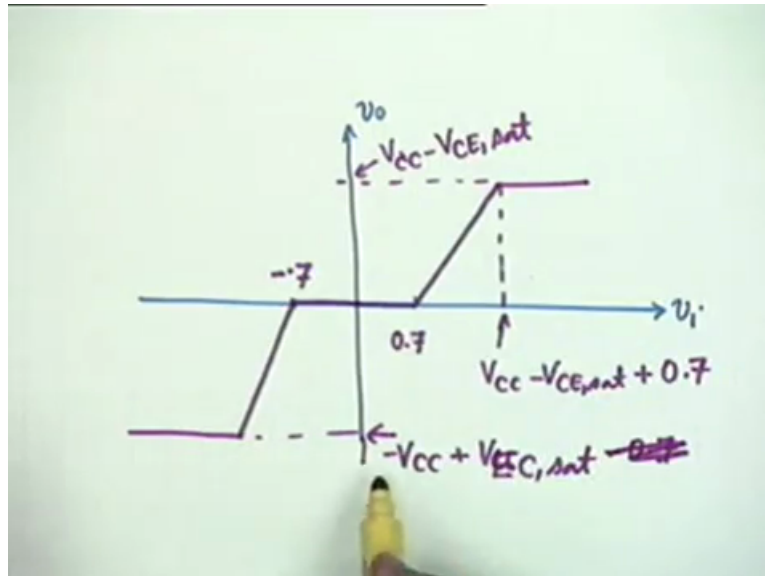 v₀
V_CC - V_CE, sat
-.7
0.7
v_i
V_CC - V_CE, sat + 0.7
-V_CC + V_EC, sat